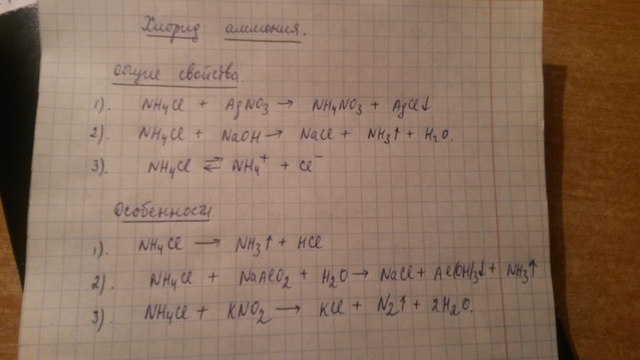 Хлорид аммония.
Общие свойства
1). NH4Cl + AgNO3 → NH4NO3 + AgCl↓
2). NH4Cl + NaOH → NaCl + NH3↑ + H2O.
3). NH4Cl ⇄ NH4+ + Cl−
Особенности
1). NH4Cl → NH3↑ + HCl
2). NH4Cl + NaAlO2 + H2O → NaCl + Al(OH)3↓ + NH3↑
3). NH4Cl + KNO2 → KCl + N2↑ + 2H2O.